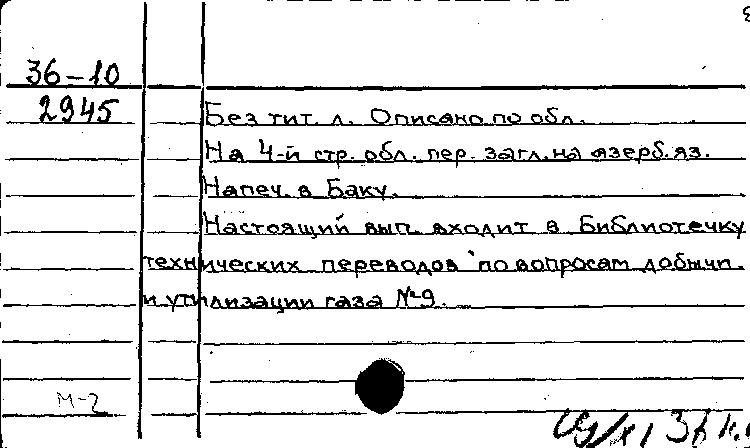 36-10
2945
Без тит. л. Описано по обл.
На 4-й стр. обл. пер. загл. на азерб. яз.
Напеч. в Баку.
Настоящий вып. входит в Библиотечку
технических переводов по вопросам добычи
и утилизации газа №9.
М-2